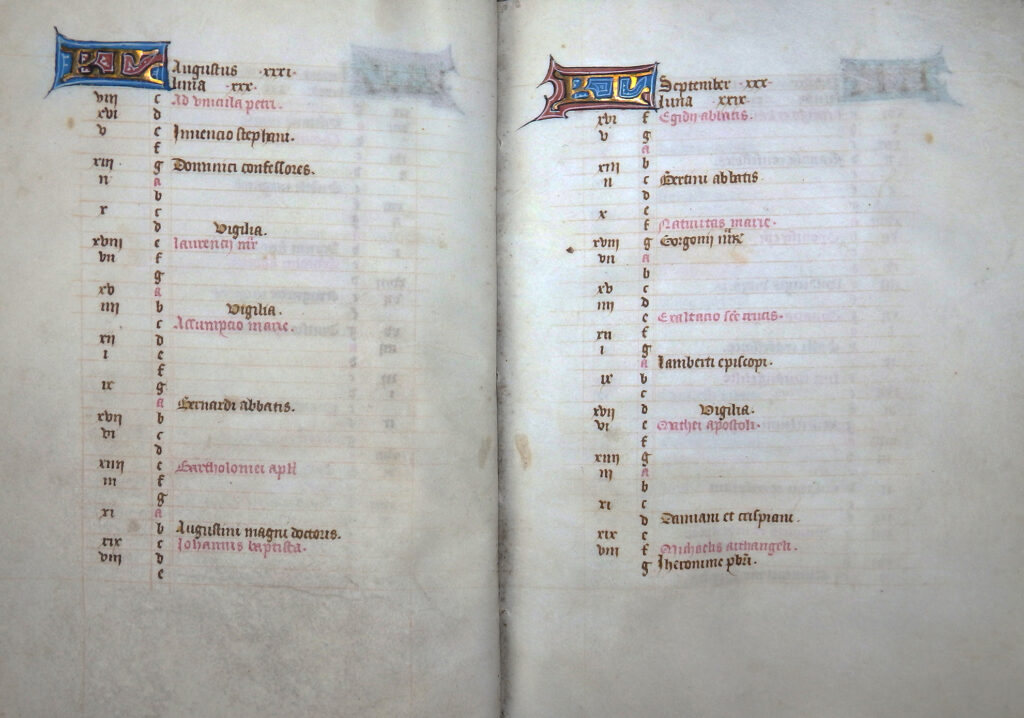 KL Augustus ·xxxi·
luna ·xxx·
viii c Ad vincula petri.
xvi d
v e Inuencio stephani.
f
xiii g Dominici confessores.
ii a
b
x c
d Vigilia.
xviii e laurencij mr
vii f
g
xv a
iiii b Vigilia.
c Assumpcio marie.
xii d
i e
f
ix g
a Bernardi abbatis.
xvii b
vi c
d
xiiii e Bartholomei apli
iii f
g
xi a
b Augustini magni doctoris.
xix c Johannis baptista.
viii d
e
KL September ·xxx·
luna xxix·
xvi f Egidij abbatis.
v g
a
xiii b
ii c Bertini abbatis
d
x e
f Natiuitas marie·
xviii g Gorgonij
vii a
b
xv c
iiii d
e Exaltacio sce crucis·
xii f
i g
a lamberti episcopi·
ix b
c
xvii d Vigilia.
vi e Mathei apostoli·
f
xiiii g
iii a
b
xi c
d Damiani et crispiani.
xix e
viii f Michaelis archangeli.
g Jheronime pbri.